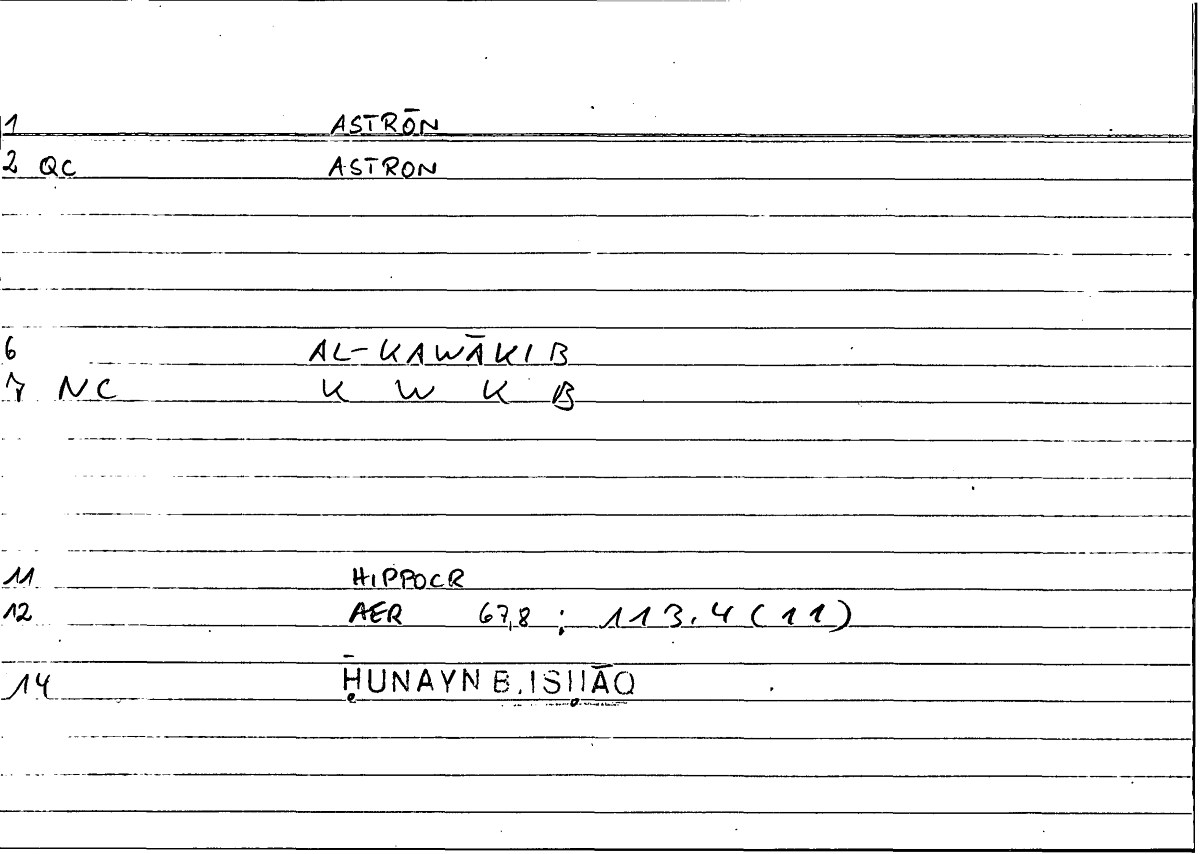 1 ASTRŌN
2 QC ASTRON
6 AL-KAWĀKIB
7 NC K W K B
11 HIPPOCR
12 AER 67,8 ; 113.4 (11)
14 ḤUNAYN B. ISḤĀQ